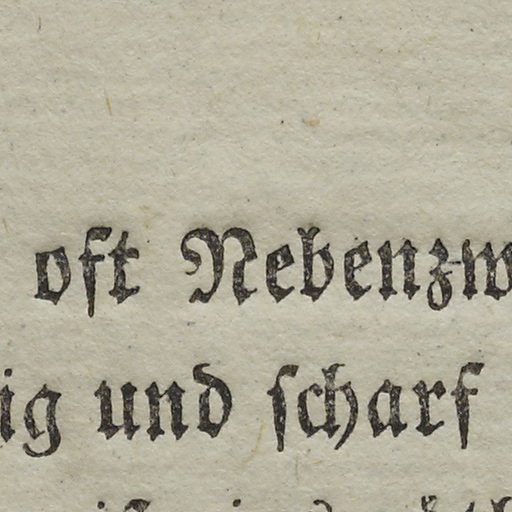 oft Nebenzw
ig und ſcharf